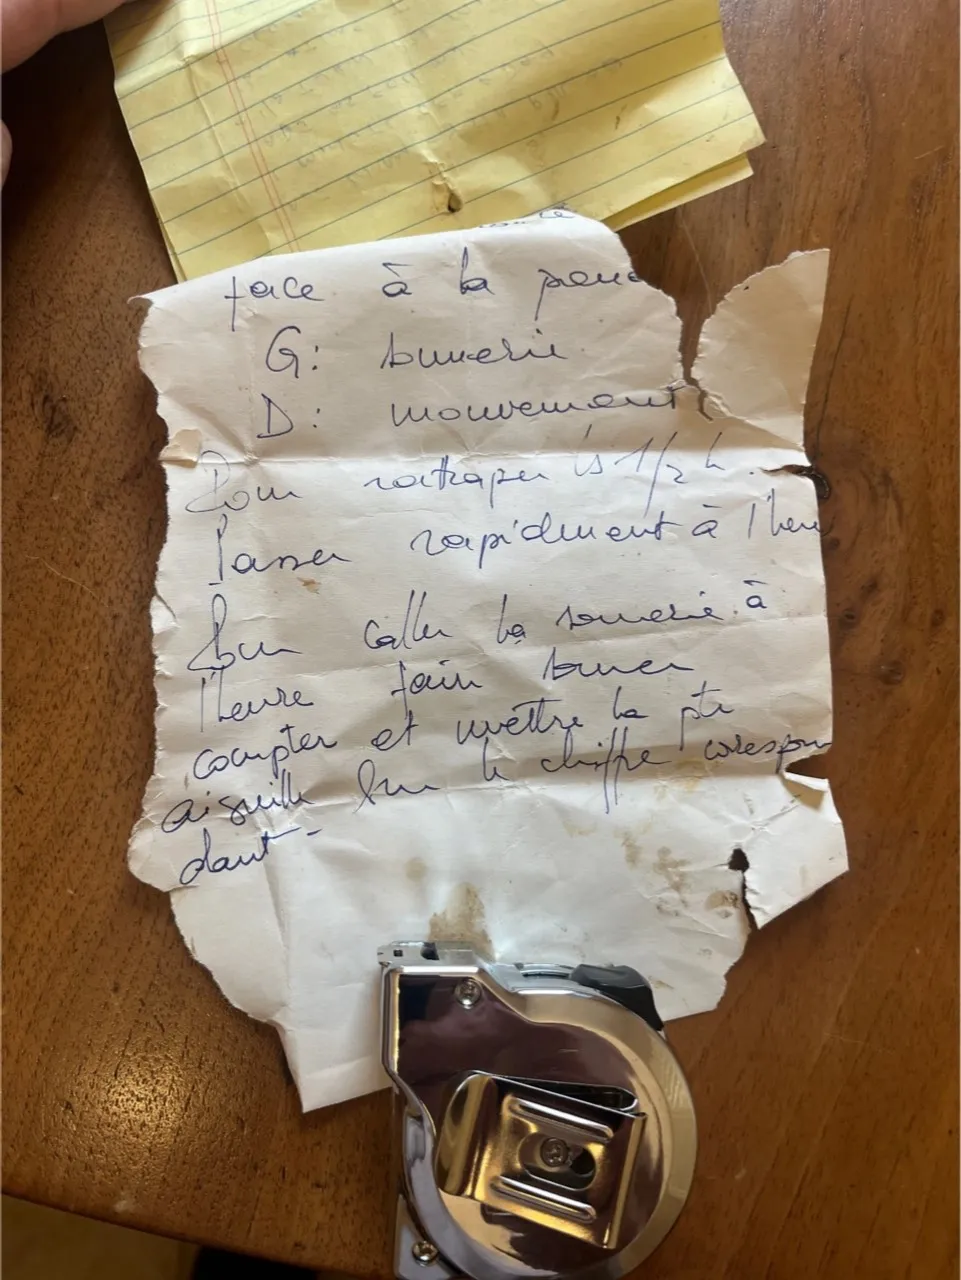 face à la pend
G: sonnerie
D: mouvement
Pour rattraper ls 1/2 h.
Passer rapidement à l'heu
Pour caller la sonnerie à
l'heure fair sonner
compter et mettre la pte
aiguille sur le chiffre corespon
dant-